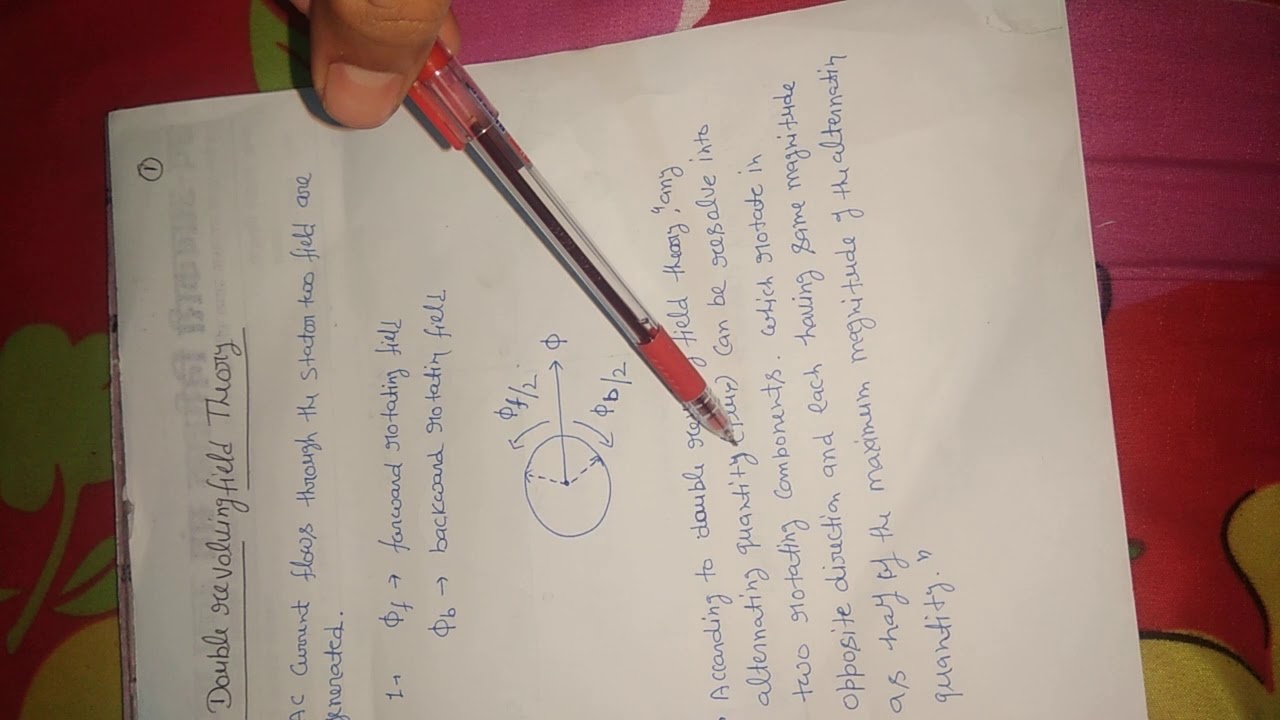 ①
Double revolving field Theory
AC Current flows through the Stator two field are
generated.
1→ Φf → forward rotating field
Φb → backward rotatin field
Φf/2
Φ
Φb/2
According to double field theory, "any
alternating quantity can be resolve into
two rotating components. which rotate in
opposite direction and each having same magnitude
as half of the maximum magnitude of the alternatin
quantity."